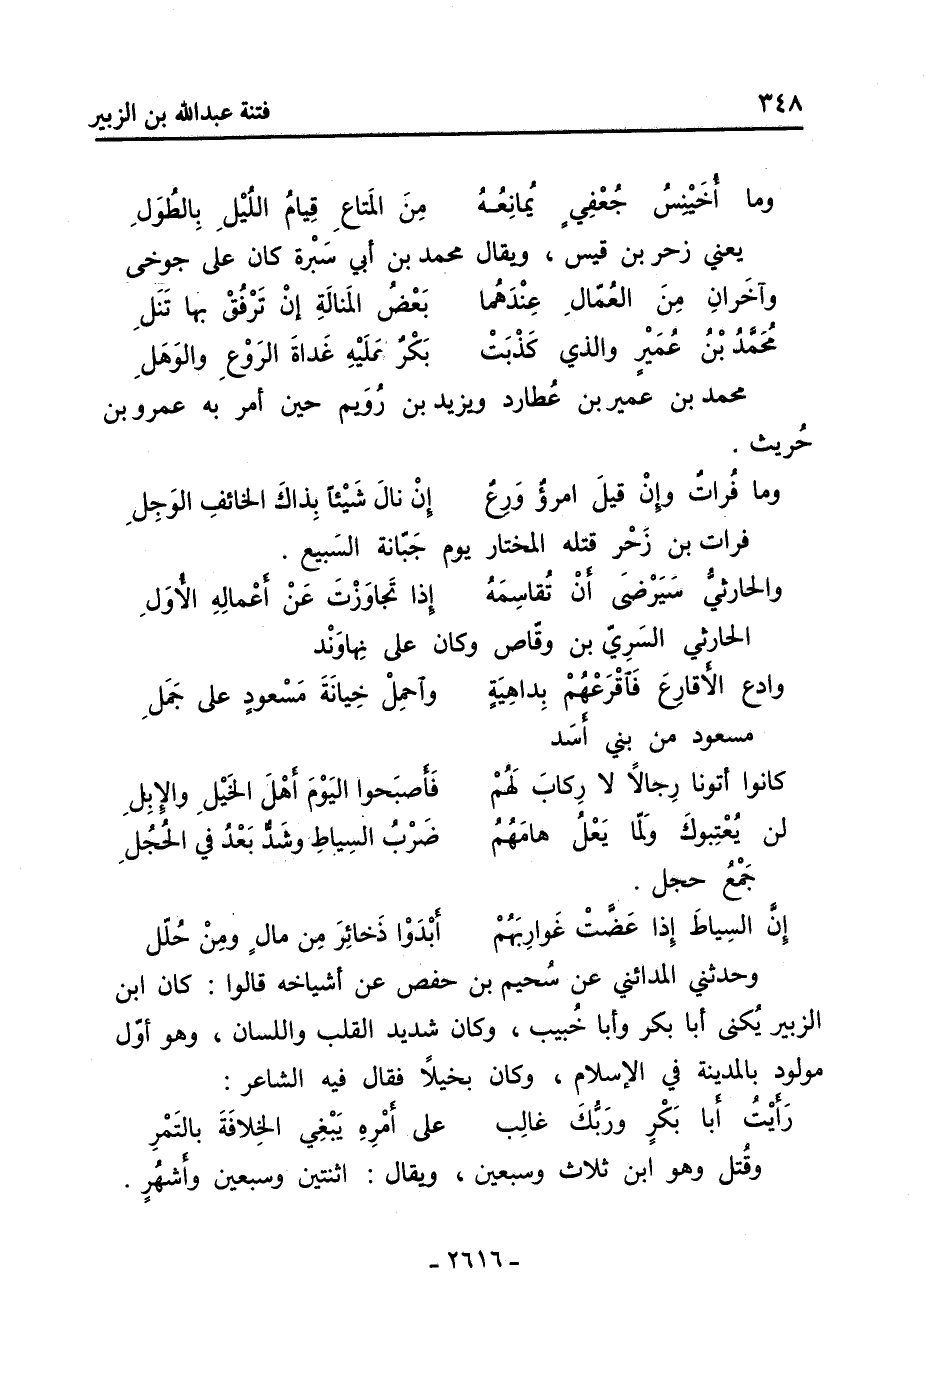 ٣٤٨ فتنة عبدالله بن الزبير
وما أُخَيْنِسُ جُعْفِيٍ يُمانِعُـهُ مِنَ المَتاعِ قِيامُ اللَّيْلِ بِالطُوَلِ
يعني زحر بن قيس ، ويقال محمد بن أبي سَبْرة كان على جوخى
وآخَرانِ مِنَ العُمّالِ عِنْدَهُما بَعْضُ المَنالَةِ إنْ تَرْفُقْ بها تَنَلِ
مُحَمَّدُ بْنُ عُمَيْرٍ والذي كَذْبَتْ بَكْرٌ عَلَيْهِ غَداةَ الرَوْعِ والوَهَلِ
محمد بن عمير بن عُطارد ويزيد بن رُوَيم حين أمر به عمرو بن
حُريث .
وما فُراتٌ وإنْ قيلَ امرؤٌ وَرِعٌ إنْ نالَ شَيْئاً بِذاكَ الخائفِ الوَجِلِ
فرات بن زَحْر قتله المختار يوم جَبّانة السَبيع .
والحارثيُّ سَيَرْضى أنْ تُقاسِمَهُ إذا تَجاوَزْتَ عَنْ أَعْمالِهِ الأُوَلِ
الحارثي السَرِيّ بن وقّاص وكان على نِهاوَنْد
وادع الأَقارِعَ فَآقْرَعْهُمْ بِداهِيَةٍ وآحمِلْ خِيانَةَ مَسْعودٍ على جَمَلِ
مسعود من بني أَسَد
كانوا أتونا رِجالًا لا رِكابَ لَهُمْ فَأَصبَحوا اليَوْمَ أَهْلَ الخَيْلِ والإِبِلِ
لن يُعْتِبوكَ وَلَمّا يَعْلُ هامَهُمُ ضَرْبُ السِياطِ وشَدٌّ بَعْدُ في الحُجُلِ
جَمْعُ حجل .
إنَّ السِياطَ إذا عَضَّتْ غَوارِبَهُمْ أَبْدَوْا ذَخائِرَ مِن مالٍ ومِنْ حُلّل
وحدثني المدائني عن سُحيم بن حفص عن أشياخه قالوا : كان ابن
الزبير يُكنى أبا بكر وأبا خُبيب ، وكان شديد القلب واللسان ، وهو أوّل
مولود بالمدينة في الإسلام ، وكان بخيلًا فقال فيه الشاعر :
رَأَيْتُ أَبا بَكْرٍ ورَبُّكَ غالِب على أَمْرِهِ يَبْغِي الخِلافَةَ بالتَمْرِ
وقُتل وهو ابن ثلاث وسبعين ، ويقال : اثنتين وسبعين وأَشهُرٍ .
- ٢٦١٦ -